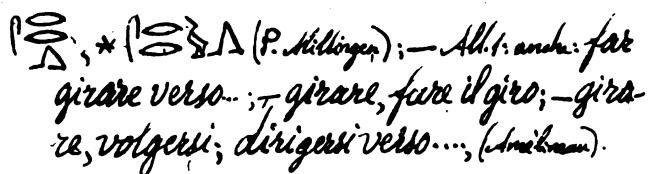 𓋴𓂋𓂋𓂻, * 𓋴𓂋𓂋 𓂻 (P. Millingen); — All. 1: anche: far
girare verso...; — girare, fare il giro; — gira-
re, volgersi; dirigersi verso...., (Amélineau).